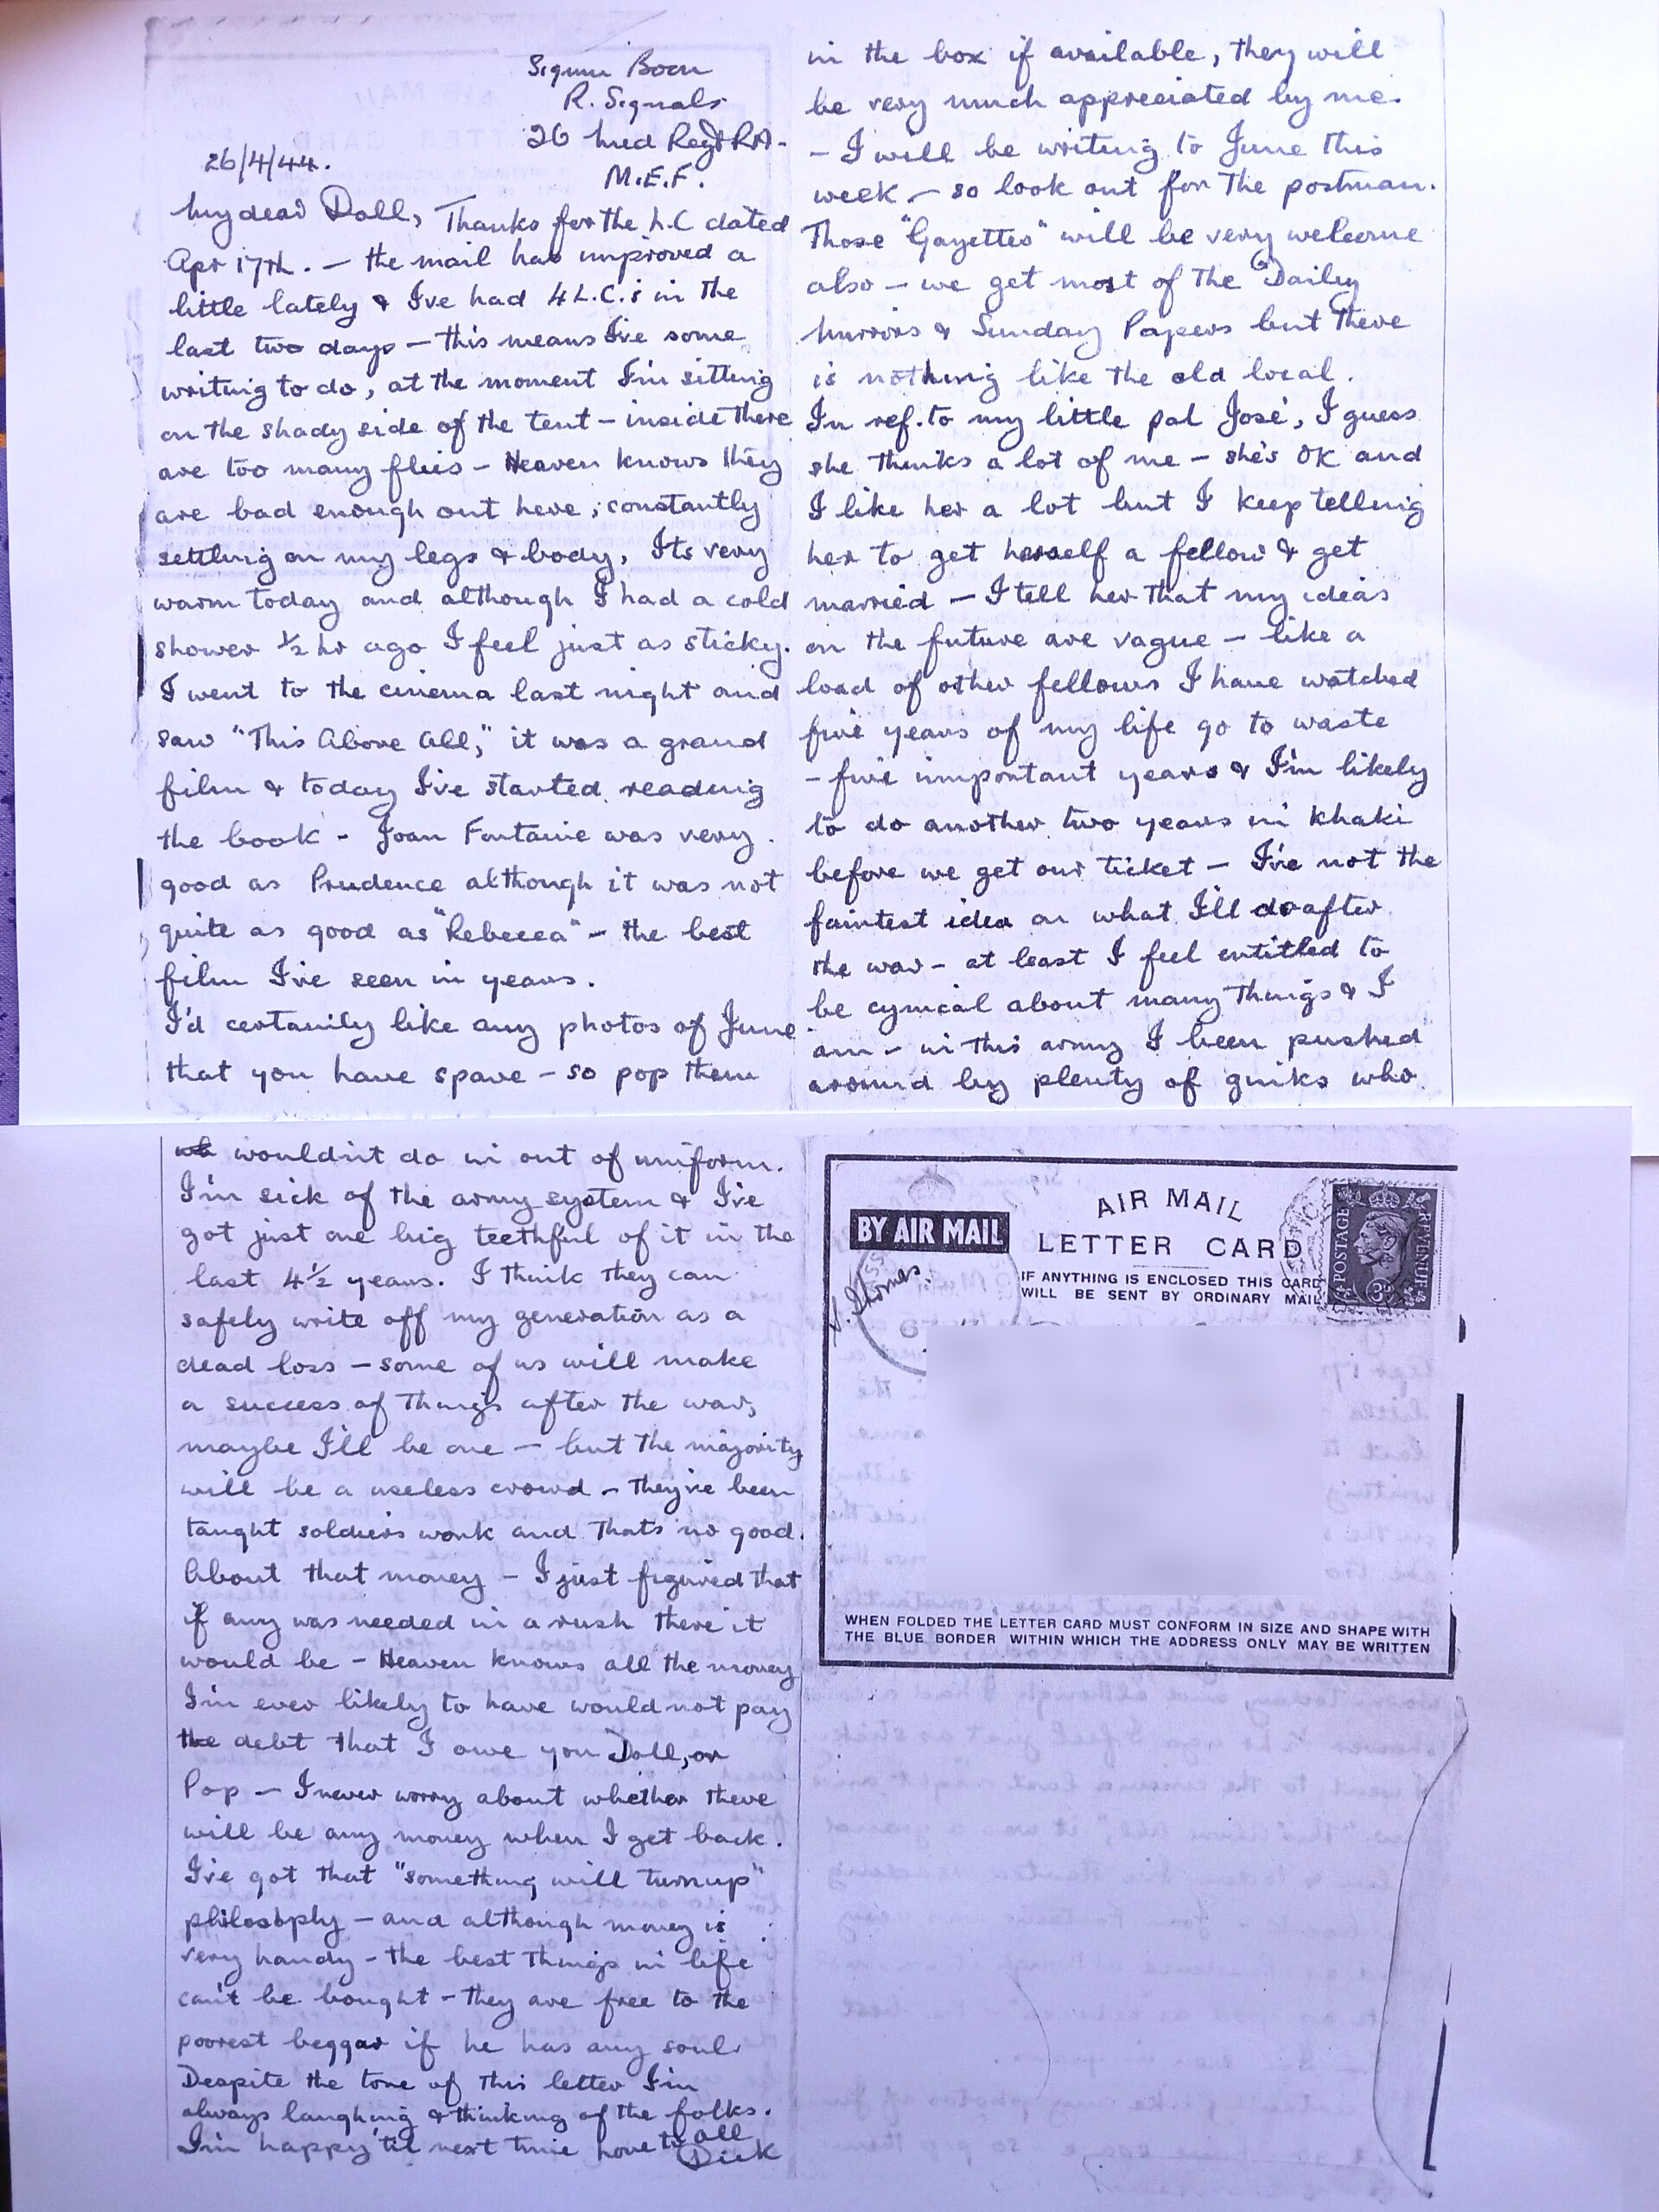 Signm Boon
R. Signals
26 Med Regt RA.
M.E.F.
26/4/44.
My dear Doll, Thanks for the L.C dated
Apr 17th. — the mail has improved a
little lately & I've had 4 L.C.'s in the
last two days — this means I've some
writing to do, at the moment I'm sitting
on the shady side of the tent — inside there
are too many flies — Heaven knows they
are bad enough out here, constantly
settling on my legs & body. Its very
warm today and although I had a cold
shower ½ hr ago I feel just as sticky.
I went to the cinema last night and
saw "This Above All," it was a grand
film & today I've started reading
the book - Joan Fontaine was very
good as Prudence although it was not
quite as good as "Rebecca" — the best
film I've seen in years.
I'd certainly like any photos of June
that you have spare — so pop them
in the box if available, they will
be very much appreciated by me.
— I will be writing to June this
week — so look out for the postman.
Those "Gazettes" will be very welcome
also — we get most of the Daily
Mirrors & Sunday Papers but there
is nothing like the old local.
In ref. to my little pal José, I guess
she thinks a lot of me — she's OK and
I like her a lot but I keep telling
her to get herself a fellow & get
married — I tell her that my ideas
on the future are vague — like a
load of other fellows I have watched
five years of my life go to waste
— five important years & I'm likely
to do another two years in khaki
before we get our ticket — I've not the
faintest idea on what I'll do after
the war — at least I feel entitled to
be cynical about many things & I
am — in this army I been pushed
around by plenty of guiks who
wouldn't do in out of uniform.
I'm sick of the army system & I've
got just one big teethful of it in the
last 4½ years. I think they can
safely write off my generation as a
dead loss — some of us will make
a success of things after the war,
maybe I'll be one — but the majority
will be a useless crowd — they've been
taught soldiers work and thats no good.
About that money — I just figured that
if any was needed in a rush there it
would be — Heaven knows all the money
I'm ever likely to have would not pay
the debt that I owe you Doll, or
Pop — I never worry about whether there
will be any money when I get back.
I've got that "something will turn up"
philosophy — and although money is
very handy — the best things in life
can't be bought — they are free to the
poorest beggar if he has any soul.
Despite the tone of this letter I'm
always laughing & thinking of the folks.
I'm happy 'til next time love to all
Dick
BY AIR MAIL
AIR MAIL
LETTER CARD
IF ANYTHING IS ENCLOSED THIS CARD
WILL BE SENT BY ORDINARY MAIL
POSTAGE
REVENUE
3D
V. Thomes.
WHEN FOLDED THE LETTER CARD MUST CONFORM IN SIZE AND SHAPE WITH
THE BLUE BORDER WITHIN WHICH THE ADDRESS ONLY MAY BE WRITTEN